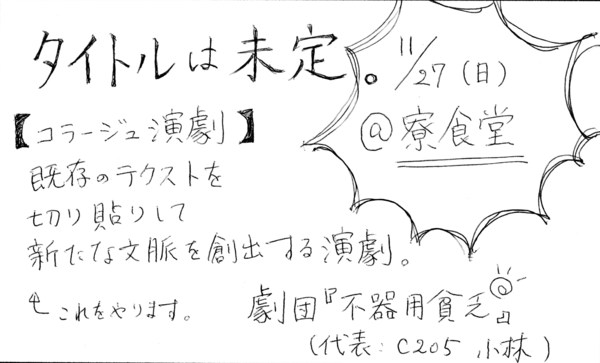 タイトルは未定。
11/27(日)
@寮食堂
【コラージュ演劇】
既存のテクストを
切り貼りして
新たな文脈を創出する演劇。
これをやります。
劇団『不器用貧乏』
(代表:C205 小林)